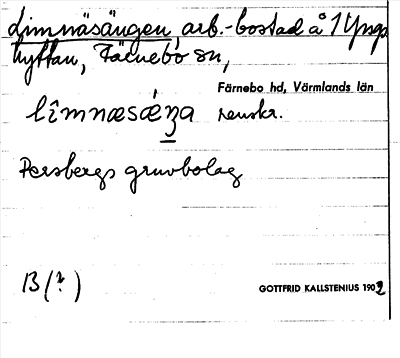 Limnäsängen, arb.-bostad å 1 Yngs
hyttan, Färnebo sn,
Färnebo hd, Värmlands län
renskr.
Persbergs gruvbolag
B (?)
GOTTFRID KALLSTENIUS 1902